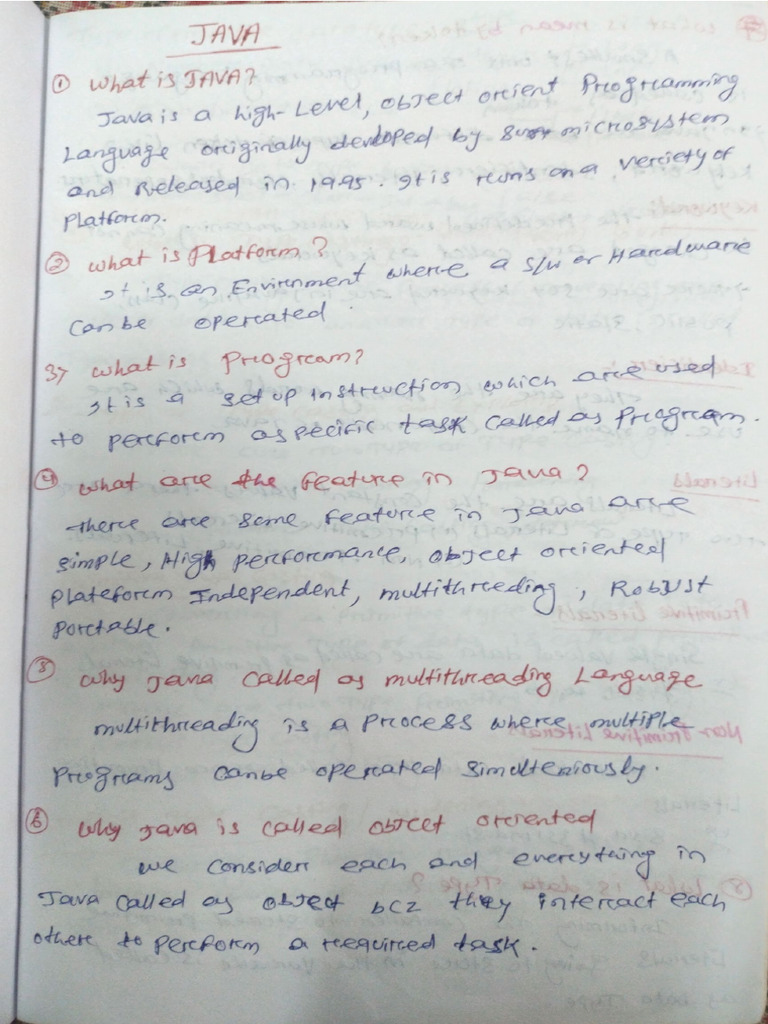 JAVA
① What is JAVA?
Java is a high-Level, object orient Programming
Language originally developed by Sun microsystem
and Released in 1995. It is runs on a verciety of
Platform.
② What is Platform?
It is an Envirnment where a S/W or Hardware
Can be operated.
3) What is Program?
It is a set up instruction which are used
to perform a specific task called as Program.
④ What are the feature in Java?
There are some feature in Java are
simple, High performance, object oriented
Plateform Independent, multithreading, Robust
Portable.
⑤ Why Java Called as multithreading Language
multithreading is a process where multiple
Programs can be operated Simulteniously.
⑥ Why Java is called object oriented
we consider each and everything in
Java called as object bcz they interact each
other to perform a required task.